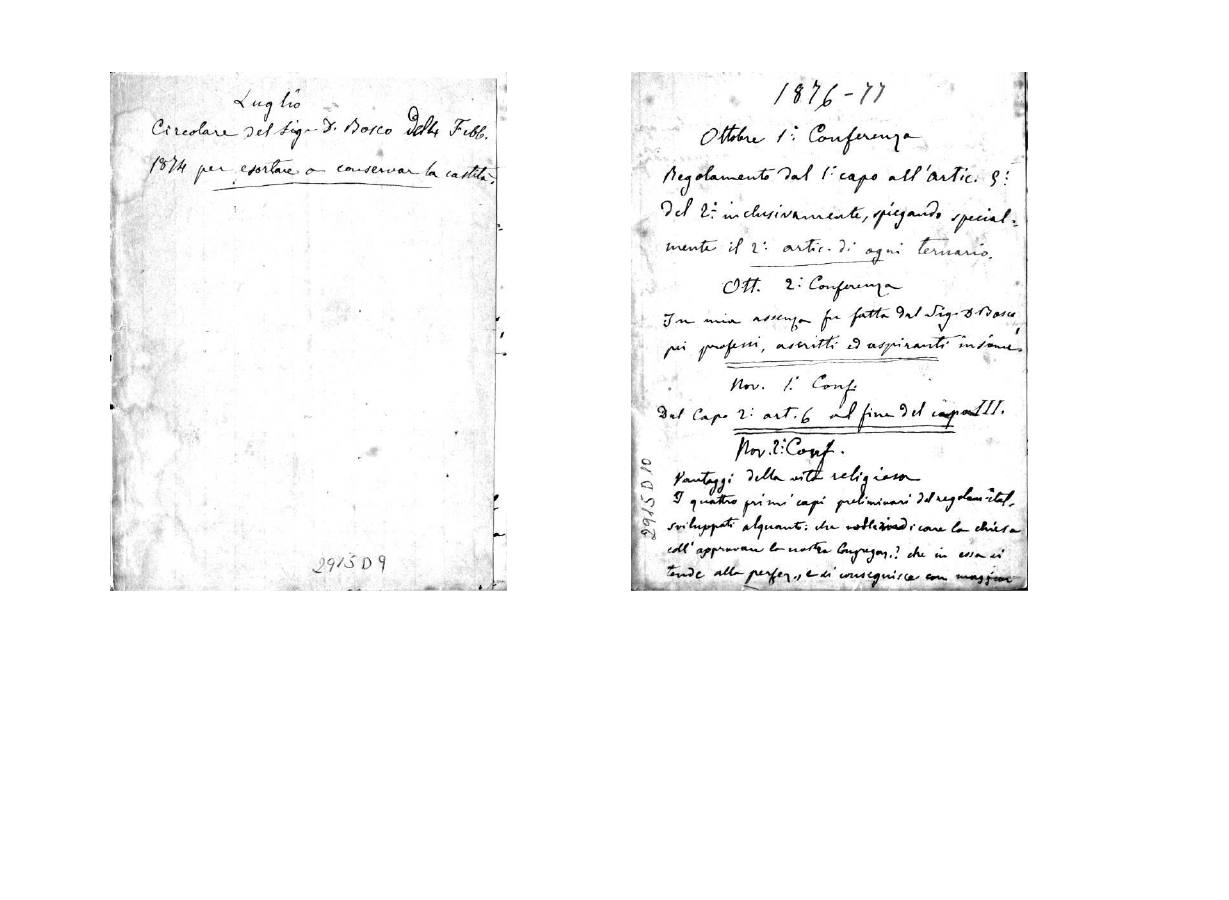 Luglio
Circolare del Sig. D. Bosco del 4 Febb.
1874 per esortare a conservar la castità.
2915 D 9
1876-77
Ottobre 1ª Conferenza
Regolamento dal 1º capo all'artic. 5º
del 2º inclusivamente, spiegando special-
mente il 2º artic. di ogni ternario.
Ott. 2ª Conferenza
In mia assenza fu fatta dal Sig. D Bosco
pei professi, ascritti ed aspiranti insieme.
Nov. 1ª Conf.
Dal Capo 2º art. 6 al fine del capo III.
Nov. 2ª Conf.
Vantaggi della vita religiosa
I quattro primi capi preliminari del regolam. ital.
sviluppati alquanto: che dicare la chiesa
coll'approvare la nostra Congregaz.? che in essa si
tende alla perfez., e si conseguisce con maggior
2915 D 10